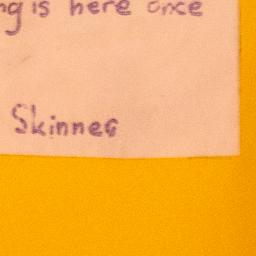 ng is here once
Skinner